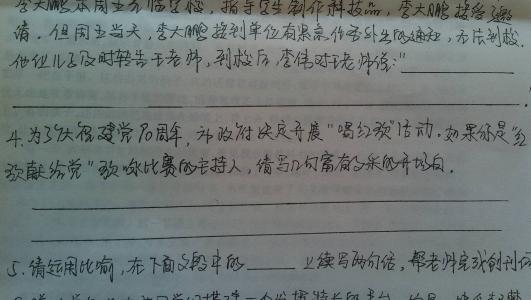 李大鹏本周五方临学校，指导学生制作科技品，李大鹏接受邀
请。但周五当天，李大鹏接到单位有紧急任务外出的通知，无法到校。
他让儿子及时转告王老师，到校后，李伟对王老师说："
4.为了庆祝建党90周年，市政府决定开展"唱红歌"活动。如果你是"红
歌献给党"歌咏比赛的主持人，请写几句富有文采的开场白。
5.请运用比喻，在下面文段中的______上续写两句话，帮老师完成创刊